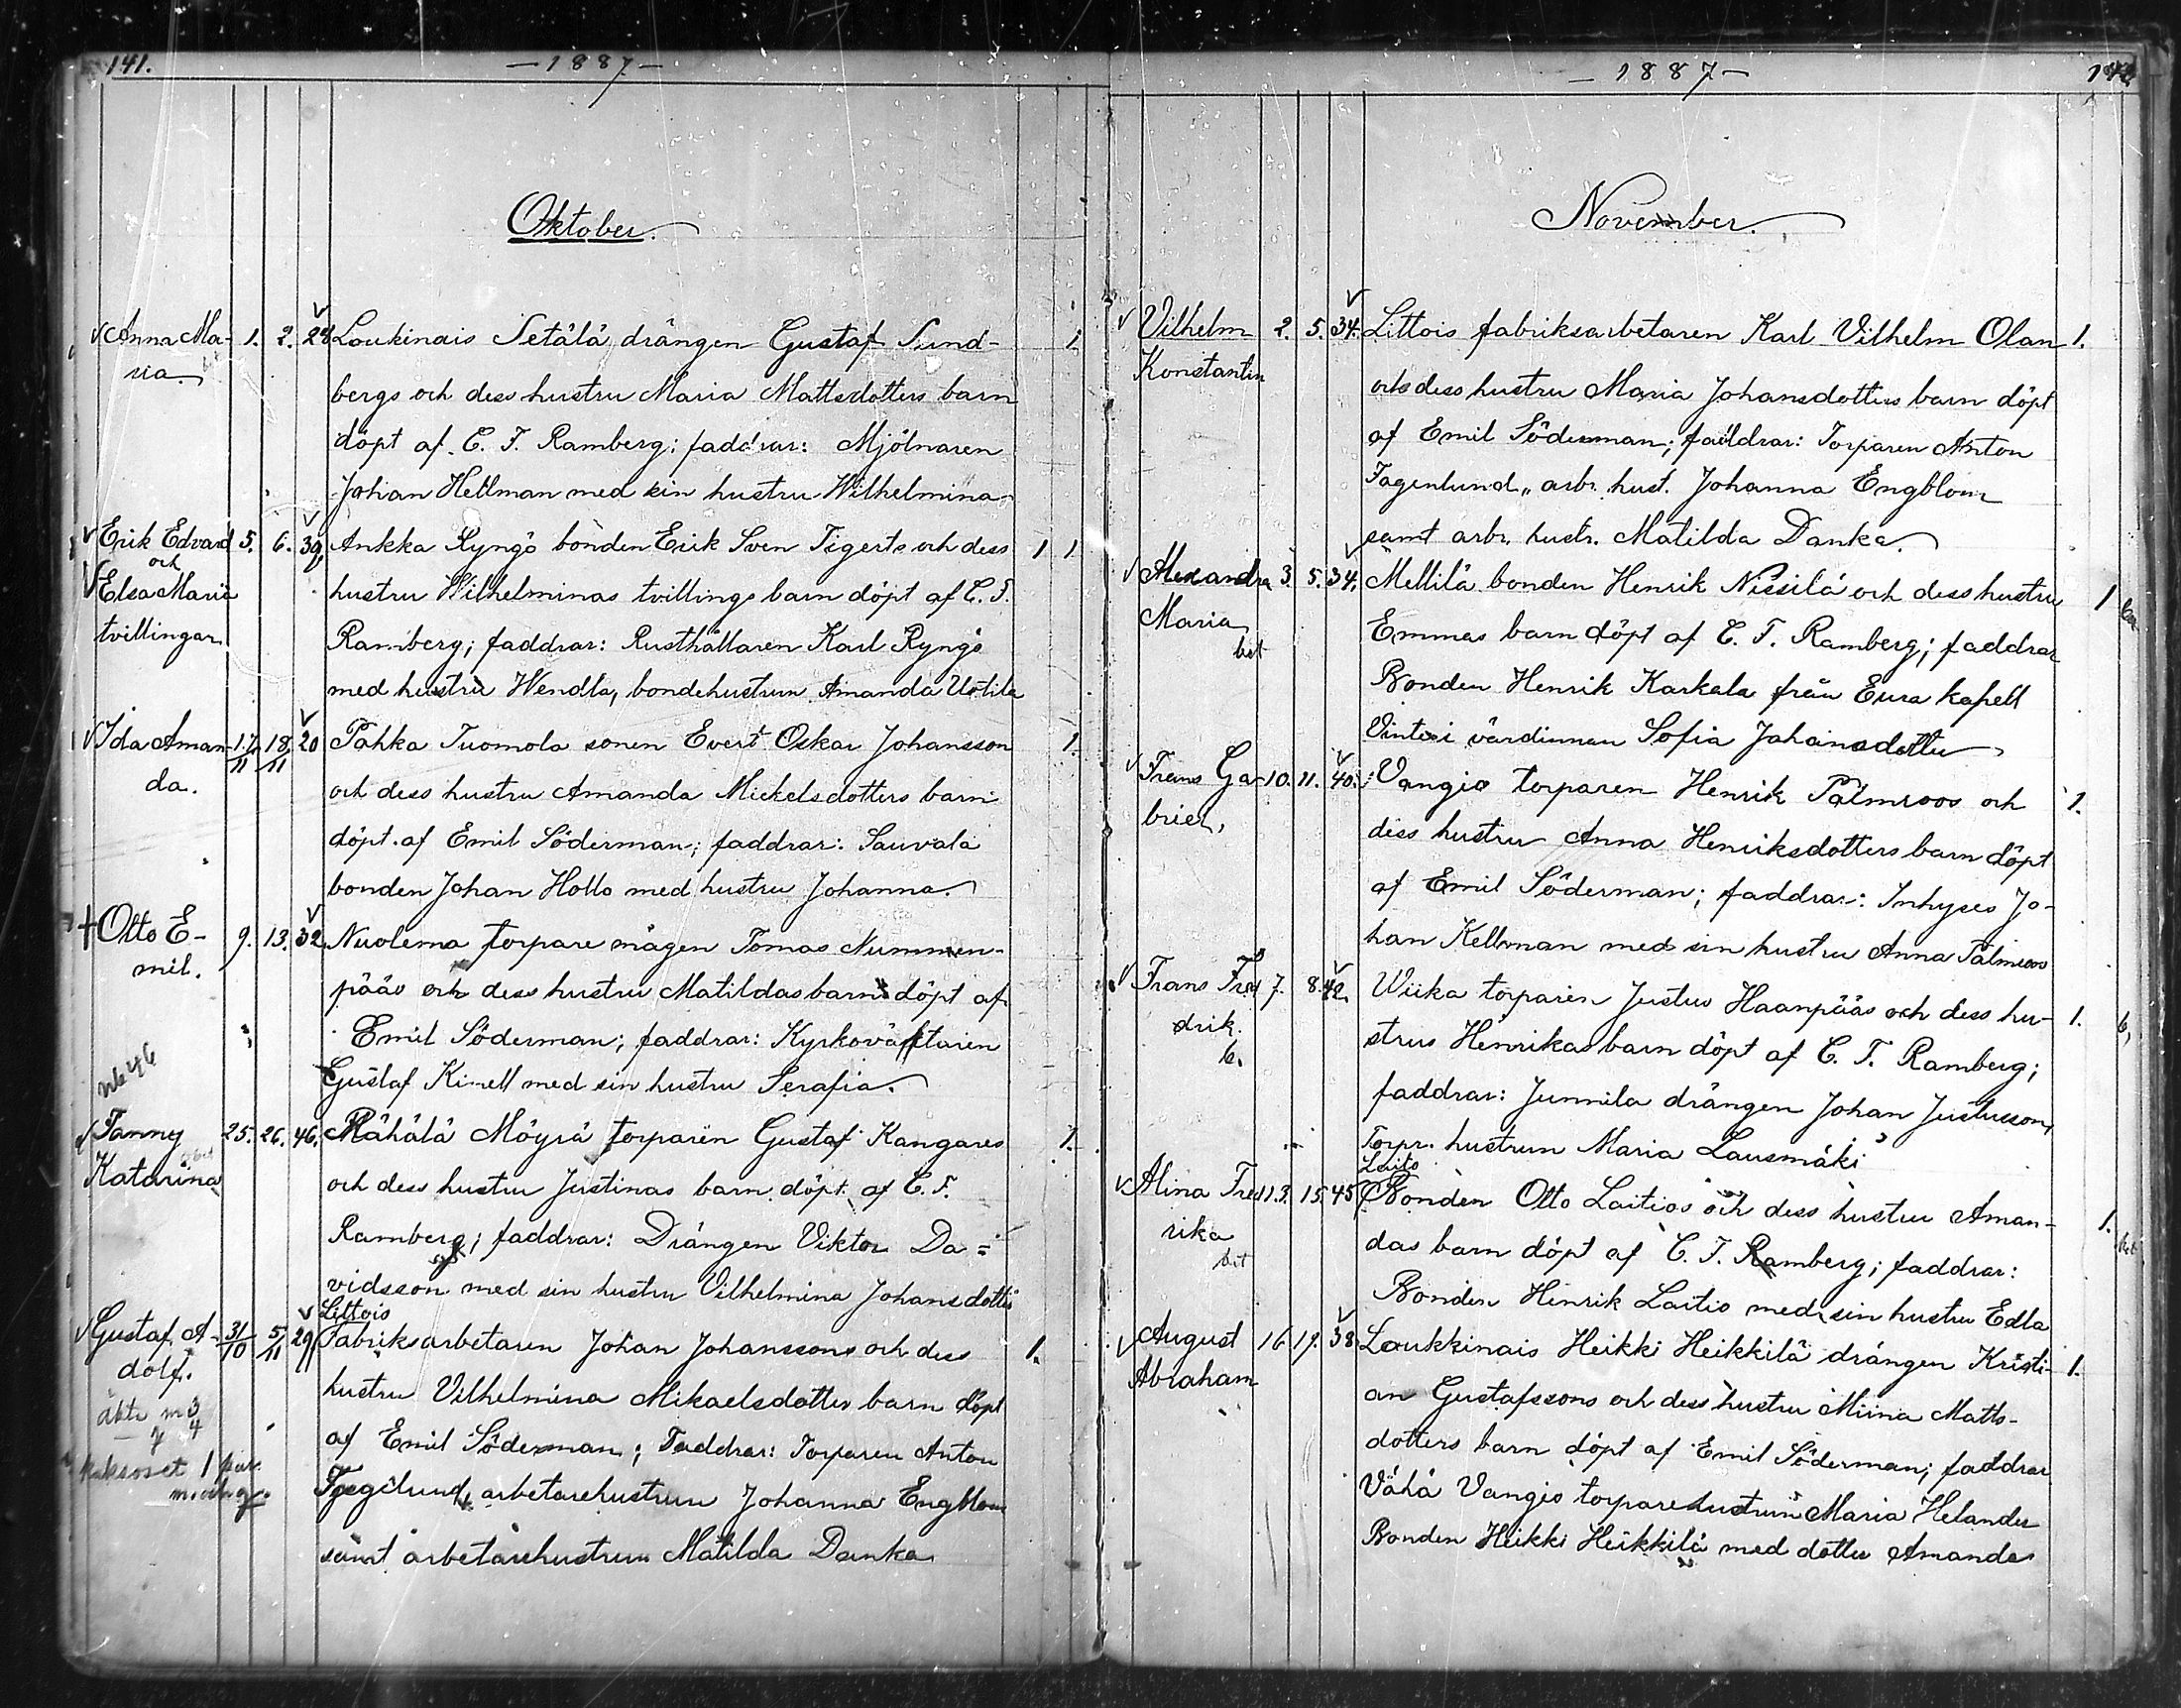 141.
— 1887 —
Oktober.
Anna Ma- 1. 2. 28 Loukinais Setälä drängen Gustaf Sund- 1.
ria.
bergs och dess hustru Maria Mattsdotters barn
döpt af C. F. Ramberg; faddrar: Mjölnaren
Johan Hellman med sin hustru Wilhelmina
Erik Edvard 5. 6. 39. Ankka Ryngö bonden Erik Sven Tigerts och dess 1 1
och
Elsa Maria hustru Wilhelminas tvillings barn döpt af C. F.
tvillingar Ramberg; faddrar: Rusthållaren Karl Ryngö
med hustru Wendla, bondehustrun Amanda Uotila
Ida Aman- 17/11 18/11 20 Pahka Tuomola sonen Evert Oskar Johansson 1.
da. och dess hustru Amanda Mickelsdotters barn
döpt af Emil Söderman; faddrar: Sauvala
bonden Johan Hollo med hustru Johanna.
+ Otto E- 9. 13. 32. Nuolema torpare mågen Tomas Nummen-
mil.
pääs och dess hustru Matildas barn döpt af
Emil Söderman; faddrar: Kyrkoväktaren
Gustaf Kinell med sin hustru Serafia.
Fanny 25. 26. 46. Rähälä Möyrä torparen Gustaf Kangares 1.
Katarina och dess hustru Justinas barn döpt af C. F.
Ramberg; faddrar: Drängen Viktor Da=
vidsson med sin hustru Vilhelmina Johansdotter
Littois
Gustaf A- 31/10 5/11 29 Fabriksarbetaren Johan Johanssons och dess 1.
dolf.
hustru Vilhelmina Mikaelsdotters barn döpt
af Emil Söderman; Faddrar: Torparen Anton
kaksoset 1 par
arbetarehustrun Johanna Engblom
samt arbetarehustrun Matilda Danka
— 1887 —
November.
Vilhelm 2. 5. 34. Littois fabriksarbetaren Karl Vilhelm Olan 1.
Konstantin
och dess hustru Maria Johansdotters barn döpt
af Emil Söderman; faddrar: Torparen Anton
Fagerlund, arbr. hust. Johanna Engblom
samt arbr. hustr. Matilda Danka.
Alexandra 3. 5. 34. Mellilä bonden Henrik Nissilä och dess hustru 1
Maria Emmas barn döpt af C. F. Ramberg; faddrar
bet
Bonden Henrik Karkala från Eura kapell
värdinnan Sofia Johansdotter
Frans Ga- 10. 11. 40. Vangio torparen Henrik Palmroos och 1.
briel, dess hustru Anna Henriksdotters barn döpt
af Emil Söderman; faddrar: Inhyses Jo-
han Kellman med sin hustru Anna Palmroos
Frans Fred 7. 8. 42. Wiika torparen Justus Haanpääs och dess hu- 1. b,
drik.
b.
strus Henrikas barn döpt af C. F. Ramberg;
faddrar: Junnila drängen Johan Justusson,
Torpr. hustrun Maria Lausmäki
Laito
Alina Fred 13. 15. 45 Bonden Otto Laitios och dess hustru Aman- 1.
rika
bet
das barn döpt af C. F. Ramberg; faddrar:
Bonden Henrik Laitio med sin hustru Edla
August 16 19. 38. Loukkinais Heikki Heikkilä drängen Kristi- 1.
Abraham
an Gustafssons och dess hustru Miina Matts-
dotters barn döpt af Emil Söderman; faddrar
Vähä Vangio torparehustrun Maria Helander
Bonden Heikki Heikkilä med dotter Amanda